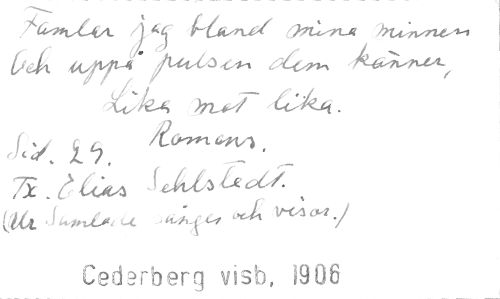 Famlar jag bland mina minnen
Och uppå pulsen dem känner,
Lika mot lika.
Romans.
Sid. 29.
Tx. Elias Sehlstedt.
(Ur Samlade sånger och visor.)
Cederberg visb, 1906